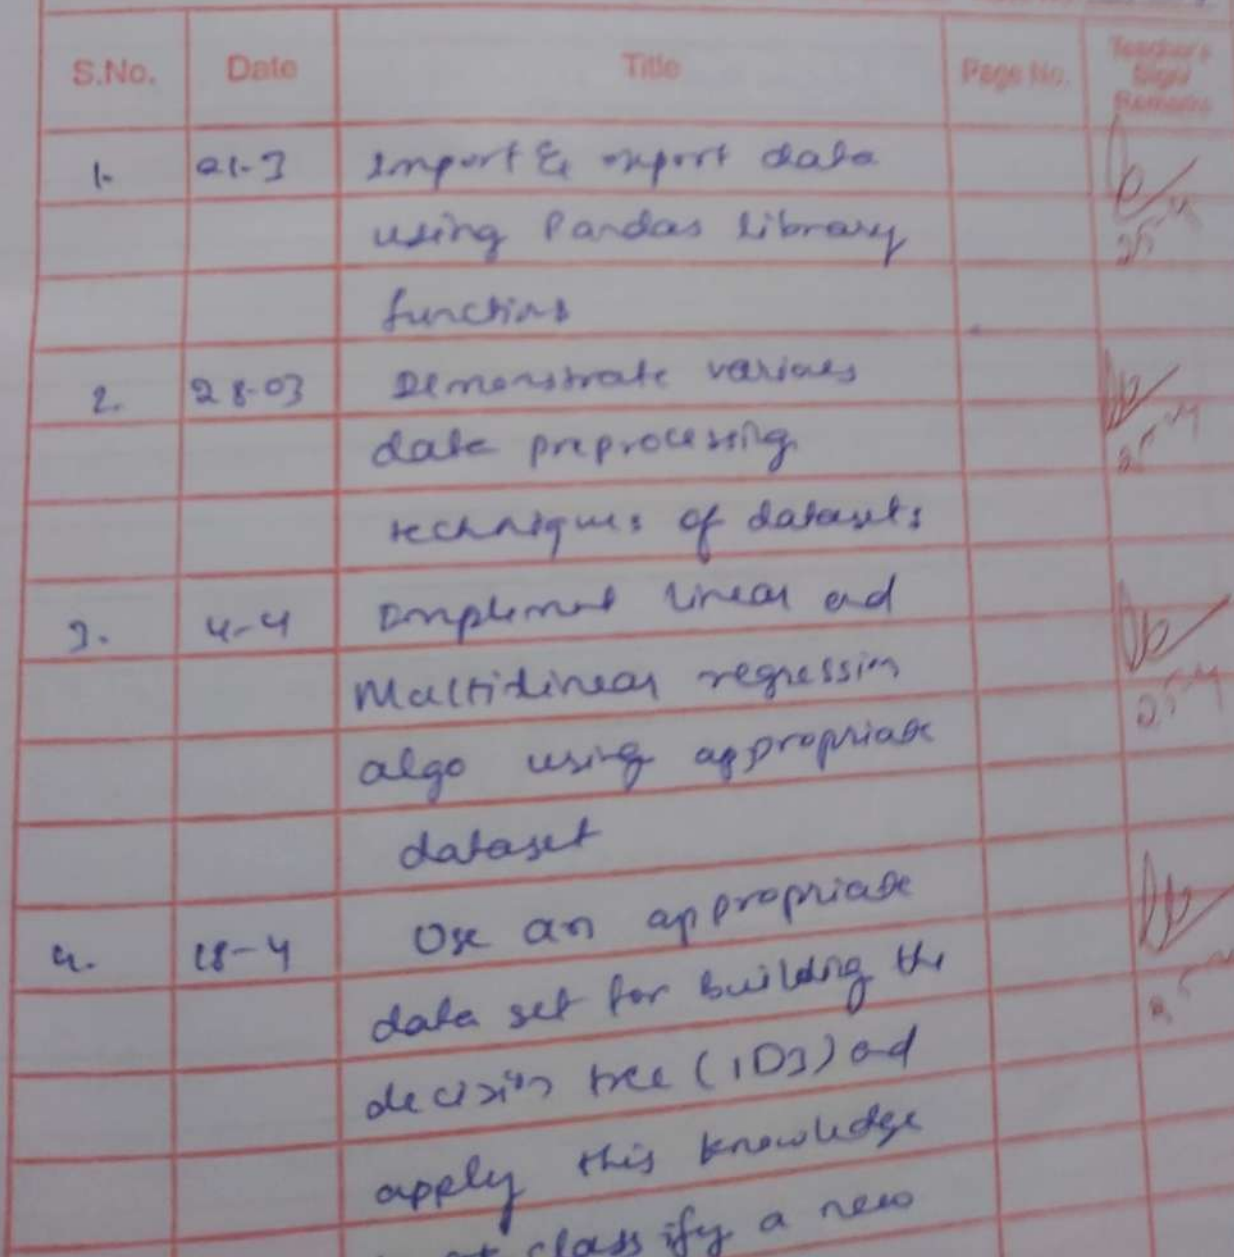 S.No. Date Title Page No. Teacher's Sign/ Remarks
1. 21-3 Import & export data
using Pandas library
functions
2. 28-03 Demonstrate various
data preprocessing
techniques of datasets
3. 4-4 Implement linear and
Multilinear regression
algo using appropriate
dataset
4. 18-4 Use an appropriate
data set for building the
decision tree (ID3) and
apply this knowledge
classify a new